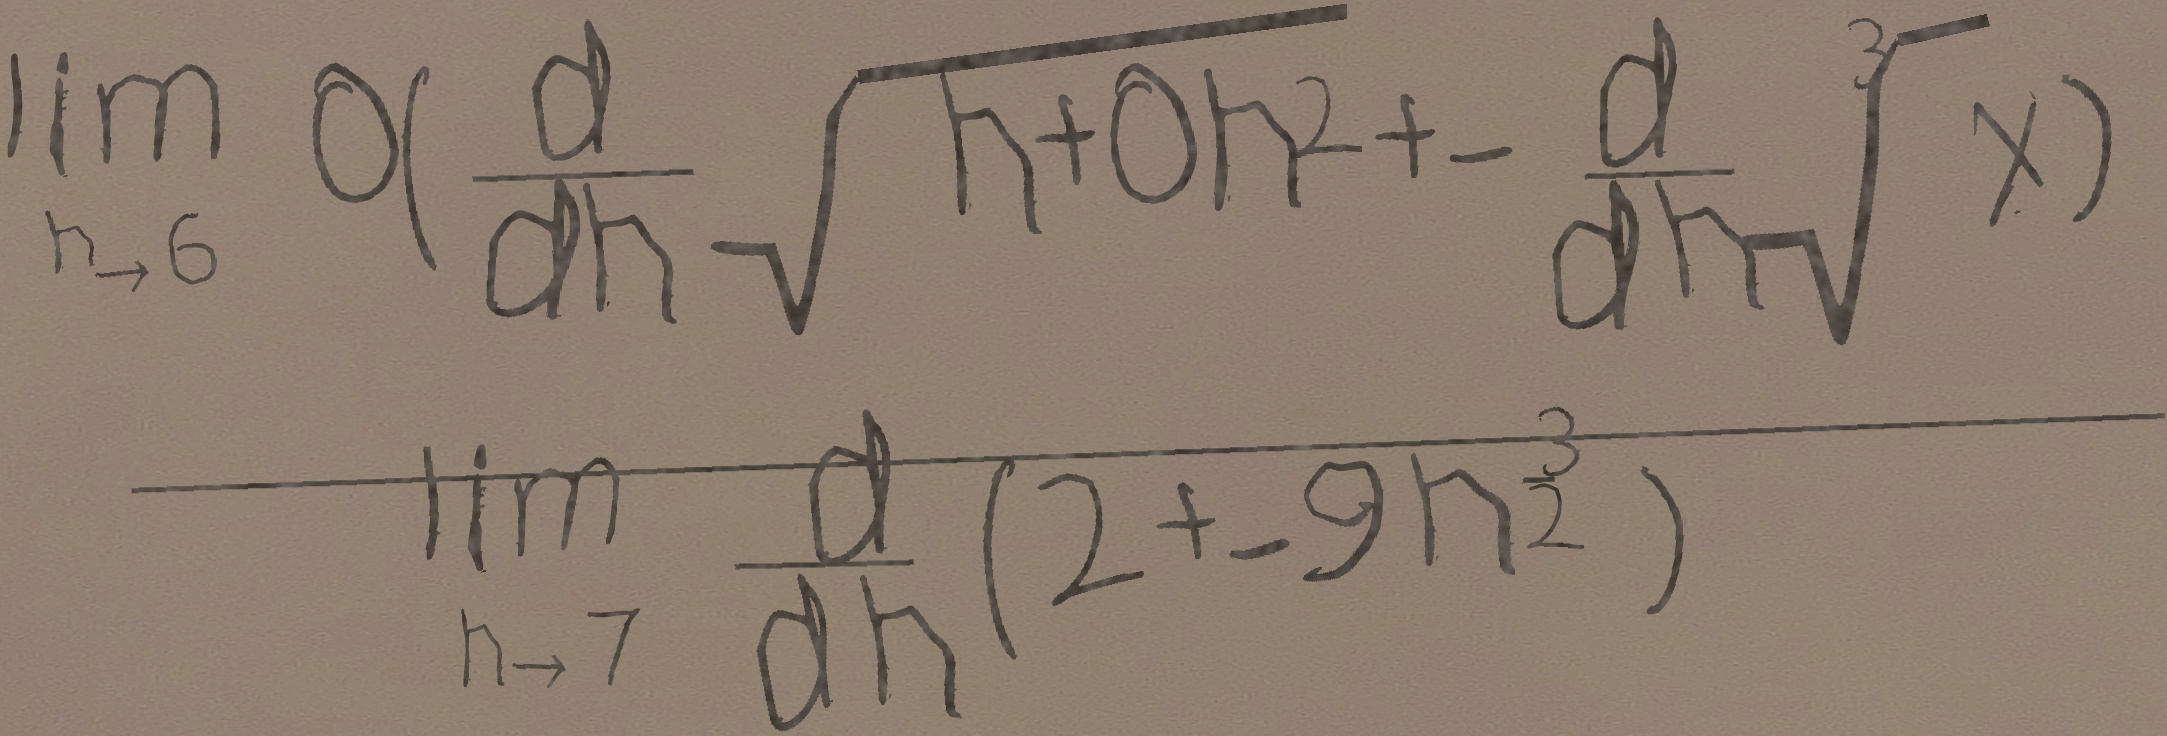 \frac{\lim_{h \to 6} 0(\frac{d}{dh} \sqrt{h+0h^2} + - \frac{d}{dh} \sqrt[3]{x})}{\lim_{h \to 7} \frac{d}{dh} (2+-9h^{\frac{3}{2}})}